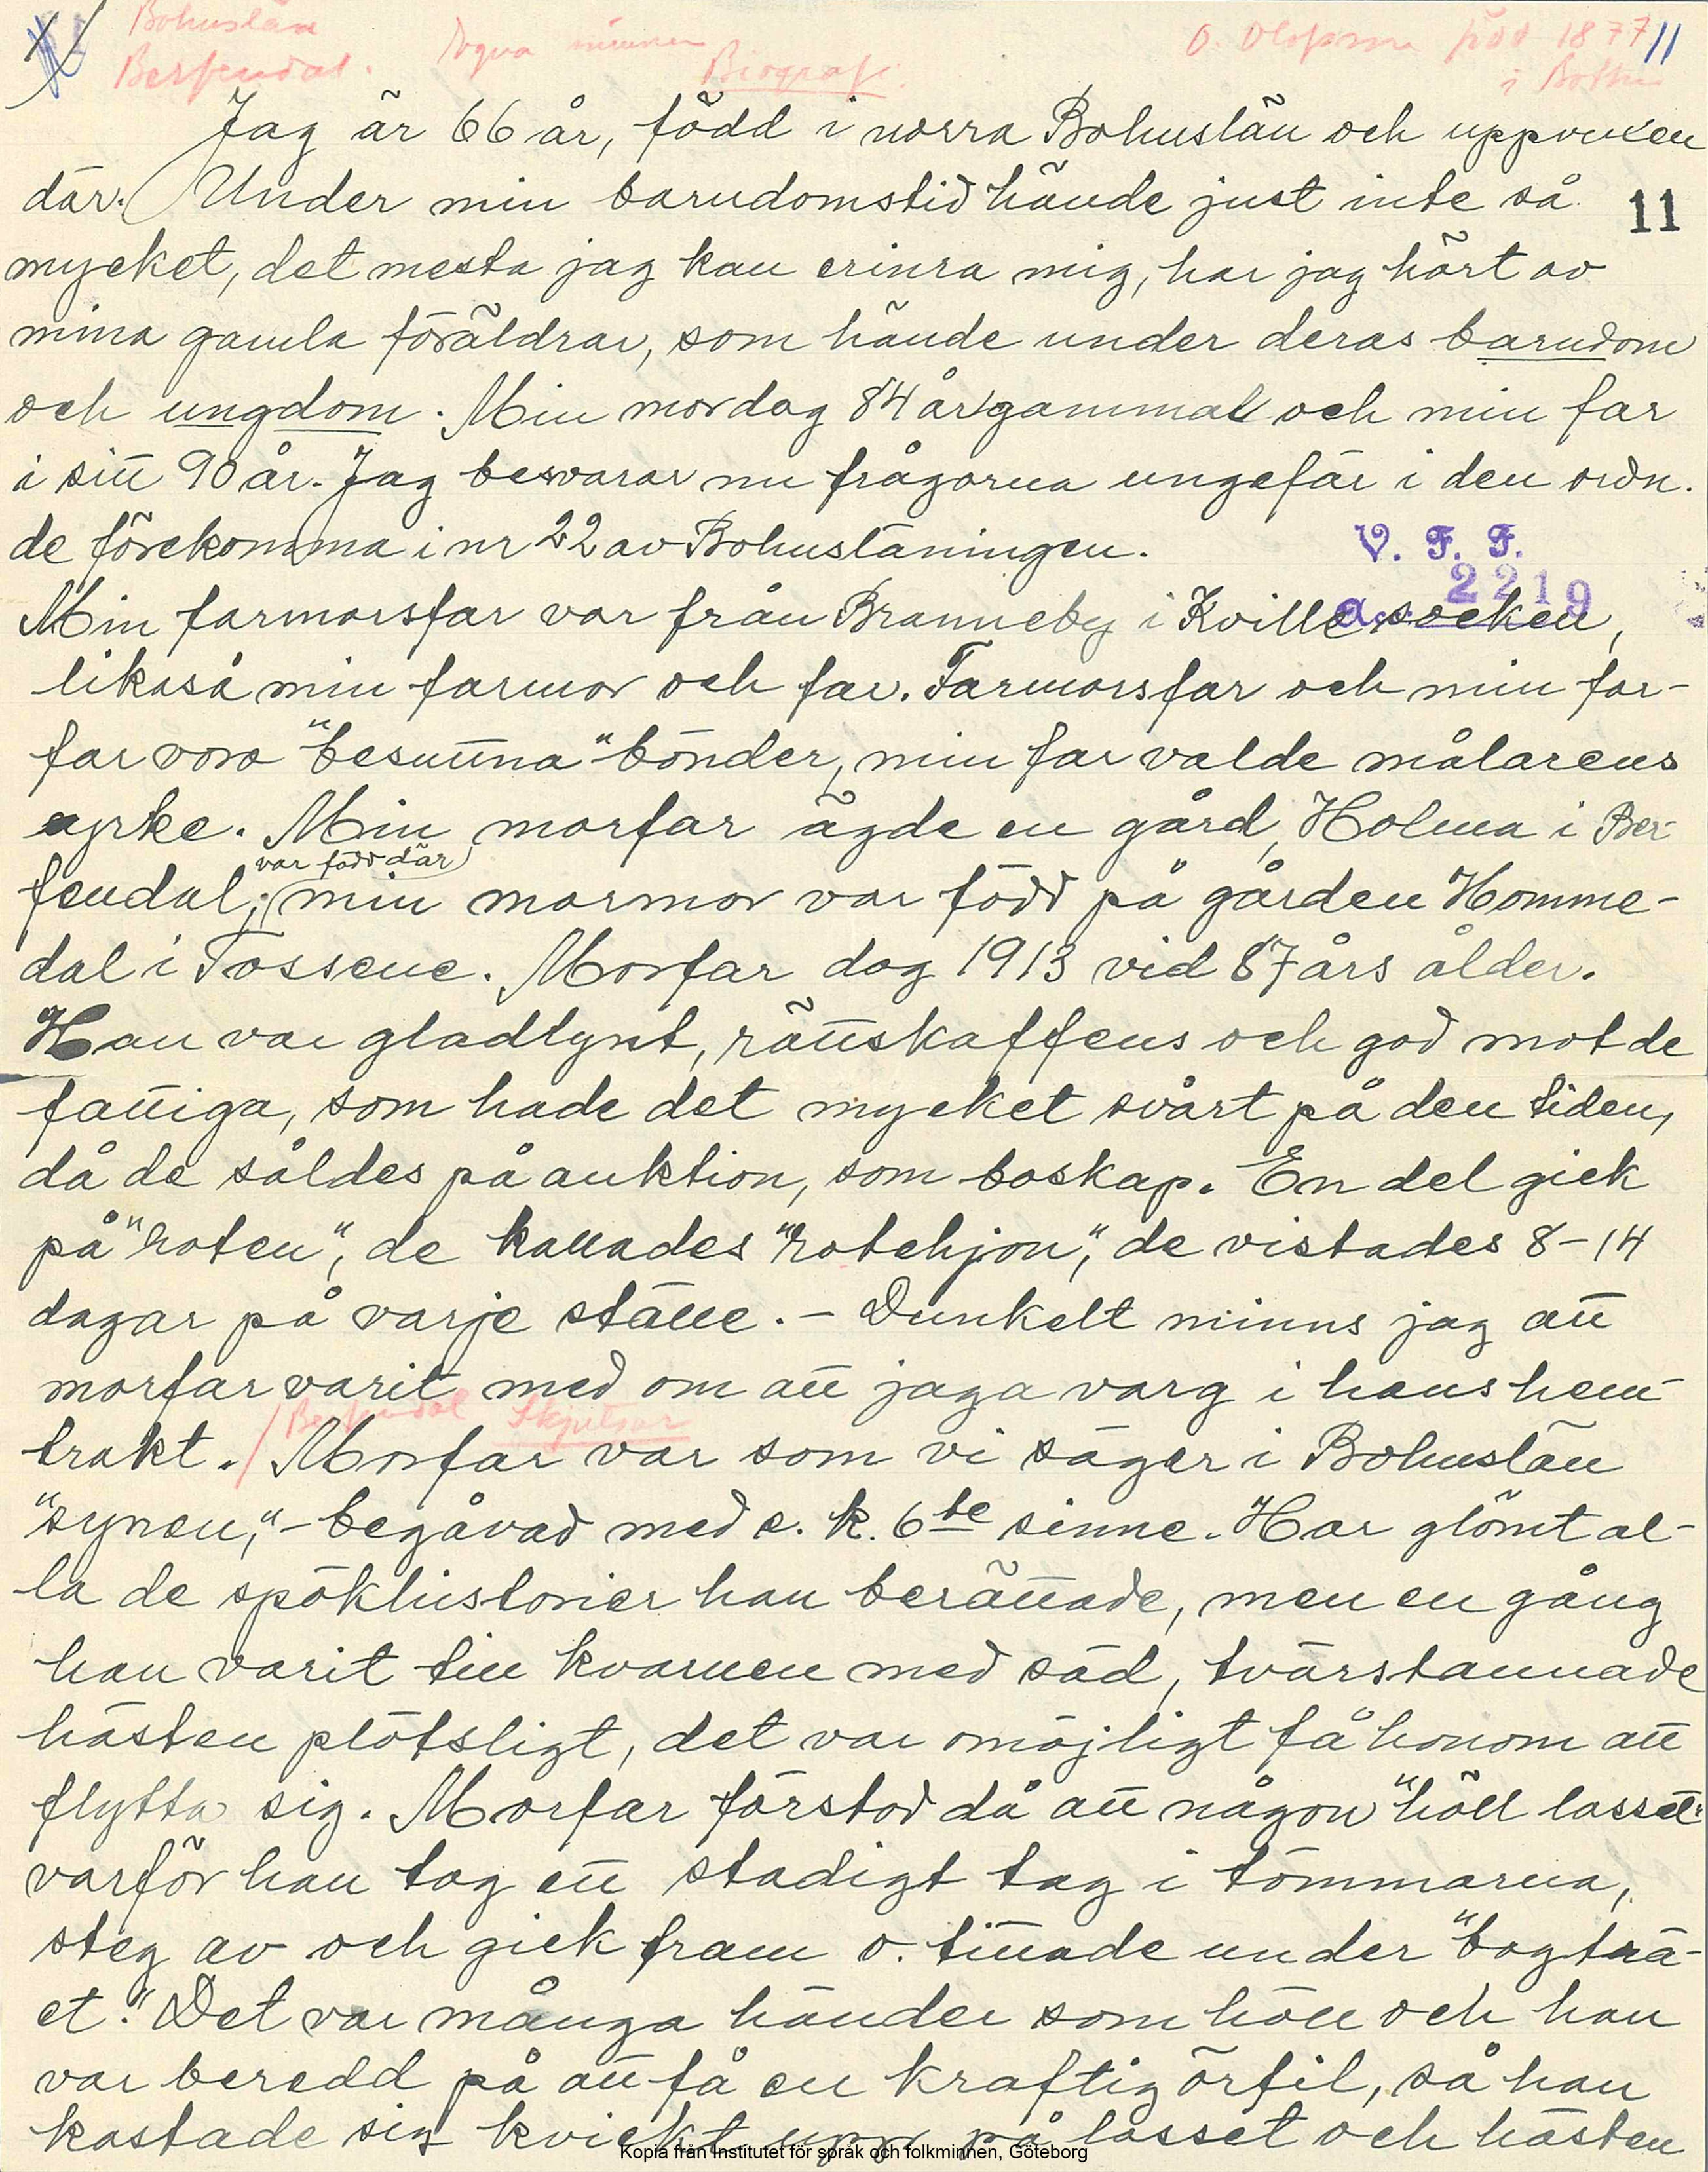 Bohuslän
Bärfendal. Egna minnen
Biografi.
O. Olofsson född 1877
i Bottna
11
Jag är 66 år, född i norra Bohuslän och uppvuxen
där. Under min barndomstid hände just inte så
11
mycket, det mesta jag kan erinra mig, har jag hört av
mina gamla föräldrar, som hände under deras barndom
och ungdom. Min mor dog 84 år gammal och min far
i sitt 90 år. Jag besvarar nu frågorna ungefär i den ordn.
de förekomma i nr 22 av Bohusläningen.
V. F. F.
2219
Min farmorsfar var från Branneby i Kville socken,
likaså min farmor och far. Farmorsfar och min far-
far voro "besuttna" bönder, min far valde målarens
yrke. Min morfar ägde en gård, Holma i Bär-
var född där
fendal; min mormor var född på gården Homme-
dal i Tossene. Morfar dog 1913 vid 87 års ålder.
Han var gladlynt, rättskaffens och god mot de
fattiga, som hade det mycket svårt på den tiden,
då de såldes på auktion, som boskap. En del gick
på "roten", de kallades "rotehjon", de vistades 8-14
dagar på varje ställe. - Dunkelt minns jag att
morfar varit med om att jaga varg i hans hem-
Bärfendal
trakt. Morfar var som vi säger i Bohuslän
"synen," - begåvad med s. k. 6te sinne. Har glömt al-
la de spökhistorier han berättade, men en gång
han varit till kvarnen med säd, tvärstannade
hästen plötsligt, det var omöjligt få honom att
flytta sig. Morfar förstod då att någon "höll lasset"
varför han tog ett stadigt tag i tömmarna,
steg av och gick fram o. tittade under "bogträ-
et." Det var många händer som höll och han
var beredd på att få en kraftig örfil, så han
kastade sig kvickt upp på lasset och hästen
Kopia från Institutet för språk och folkminnen, Göteborg